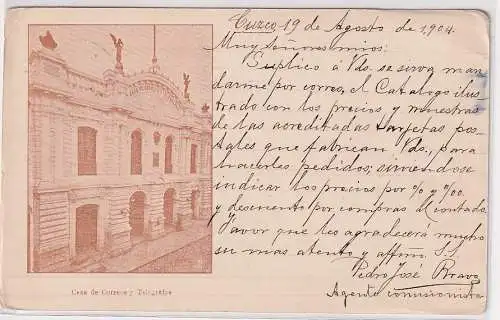 Cuzco 19 de Agosto de 1904.
Muy Señores mios:
Suplico á Vds. se sirva man
darme por correo, el Catalogo ilus
trado con los precios y muestras
de las acreditadas tarjetas pos-
tales que fabrican Vds., para
hacerles pedidos; sirviendose
indicar los precios por % y %00
y descuento por compras al contado
Favor que les agradecerá mucho
su mas atento y affmo. S. S.
Pedro José Bravo
Agente comisionista
Casa de Correos y Telégrafos